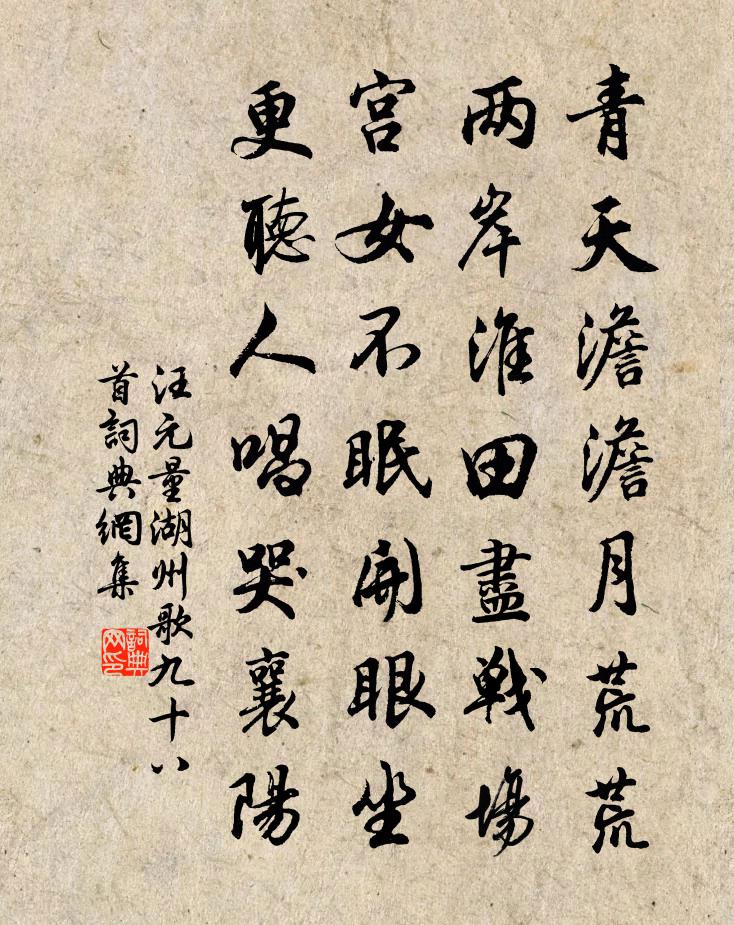 青天澹澹月荒荒
两岸淮田盡戰場
宫女不眠開眼坐
更聽人唱哭襄陽
汪元量湖州歌九十八
首詞典網集
詞典网印